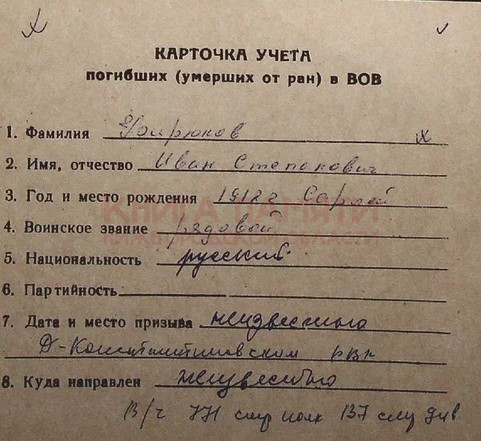 КАРТОЧКА УЧЕТА
погибших (умерших от ран) в ВОВ
1. Фамилия
2. Имя, отчество Иван Степанович
3. Год и место рождения 1912г Сарлей
КНИГА ПАМЯТИ
4. Воинское звание рядовой
5. Национальность русский
6. Партийность
7. Дата и место призыва неизвестно
Д-Константиновским РВК
8. Куда направлен неизвестно
В/ч 771 стр полк 137 стр див